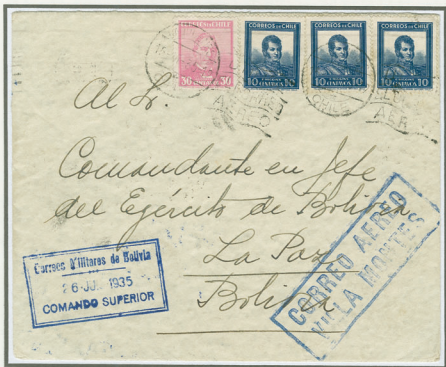 CORREOS DE CHILE
CORREOS DE CHILE
CORREOS DE CHILE
30 30
10 CENTAVOS 10
10 CENTAVOS 10
10 CENTAVOS 10
Al Sr.
Comandante en Jefe
del Ejército de Bolivia
La Paz
Bolivia
Correos Militares de Bolivia
26 JU. 1935
COMANDO SUPERIOR
CORREO AEREO
VILLA MONTES